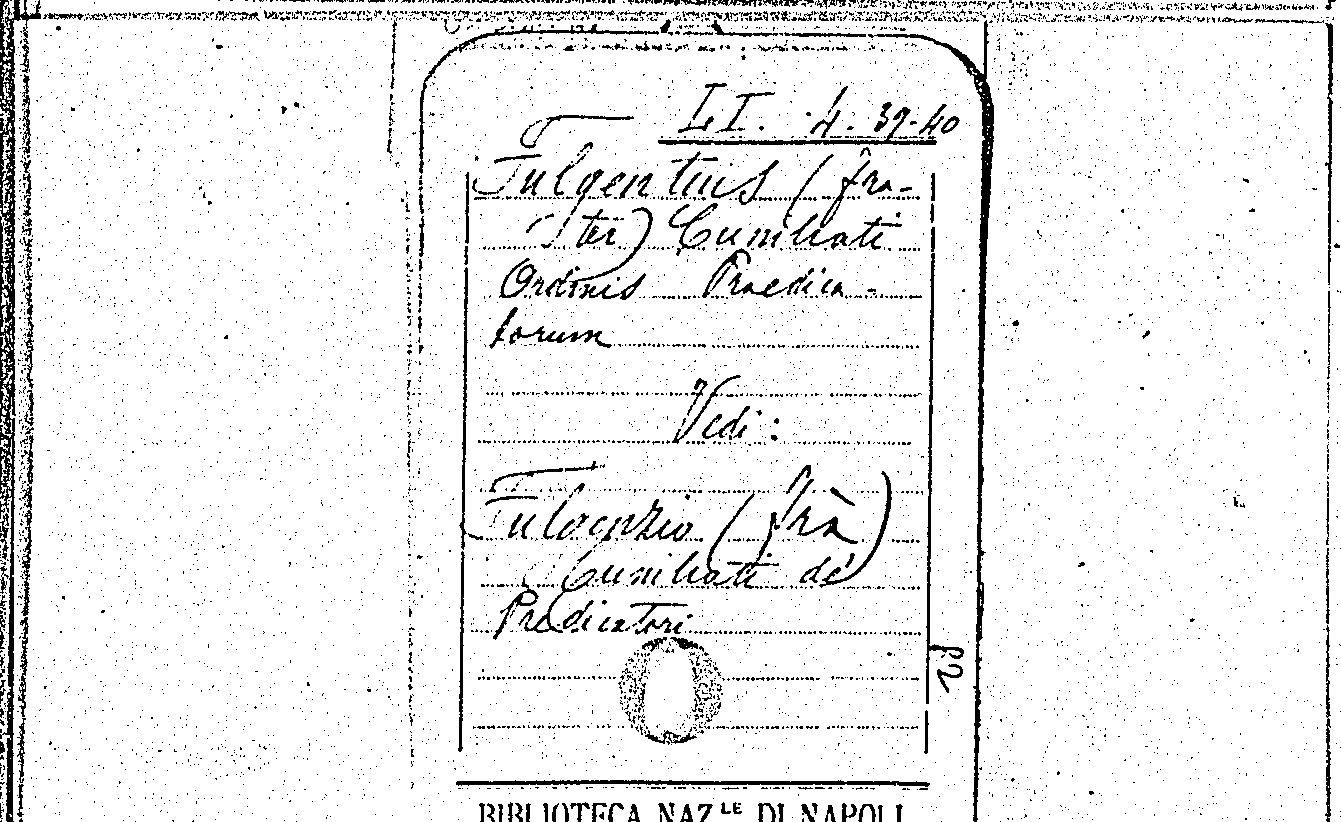 LI. 4. 39-40
Fulgentius (fra-
ter) Cuniliati
Ordinis Praedica-
torum
Vedi:
Fulgenzio (frà)
Cuniliati de'
Predicatori
BIBLIOTECA NAZLE DI NAPOLI